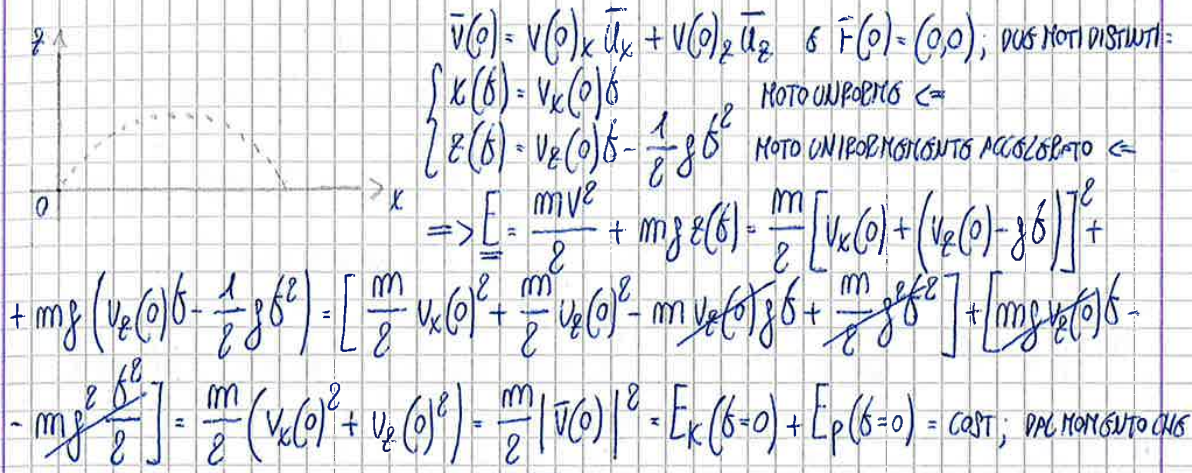 z
v̄(0) = v(0)ₓ ūₓ + v(0)_z ū_z e r̄(0) = (0,0); DUE MOTI DISTINTI:
{ x(t) = vₓ(0)t MOTO UNIFORME <=
{ z(t) = v_z(0)t - 1/2 gt² MOTO UNIFORMEMENTE ACCELERATO <=
0 x
=> E = mv²/2 + mgz(t) = m/2 [vₓ(0) + (v_z(0) - gt)]² +
+ mg (v_z(0)t - 1/2 gt²) = [m/2 vₓ(0)² + m/2 v_z(0)² - m v_z(0)gt + m/2 g²t²] + [mg v_z(0)t -
- mg² t²/2] = m/2 (vₓ(0)² + v_z(0)²) = m/2 |v̄(0)|² = E_K(t=0) + E_P(t=0) = COST; DAL MOMENTO CHE